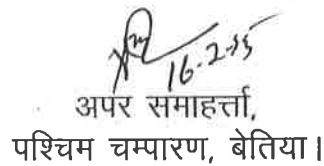 16.2.25
अपर समाहर्त्ता,
पश्चिम चम्पारण, बेतिया।